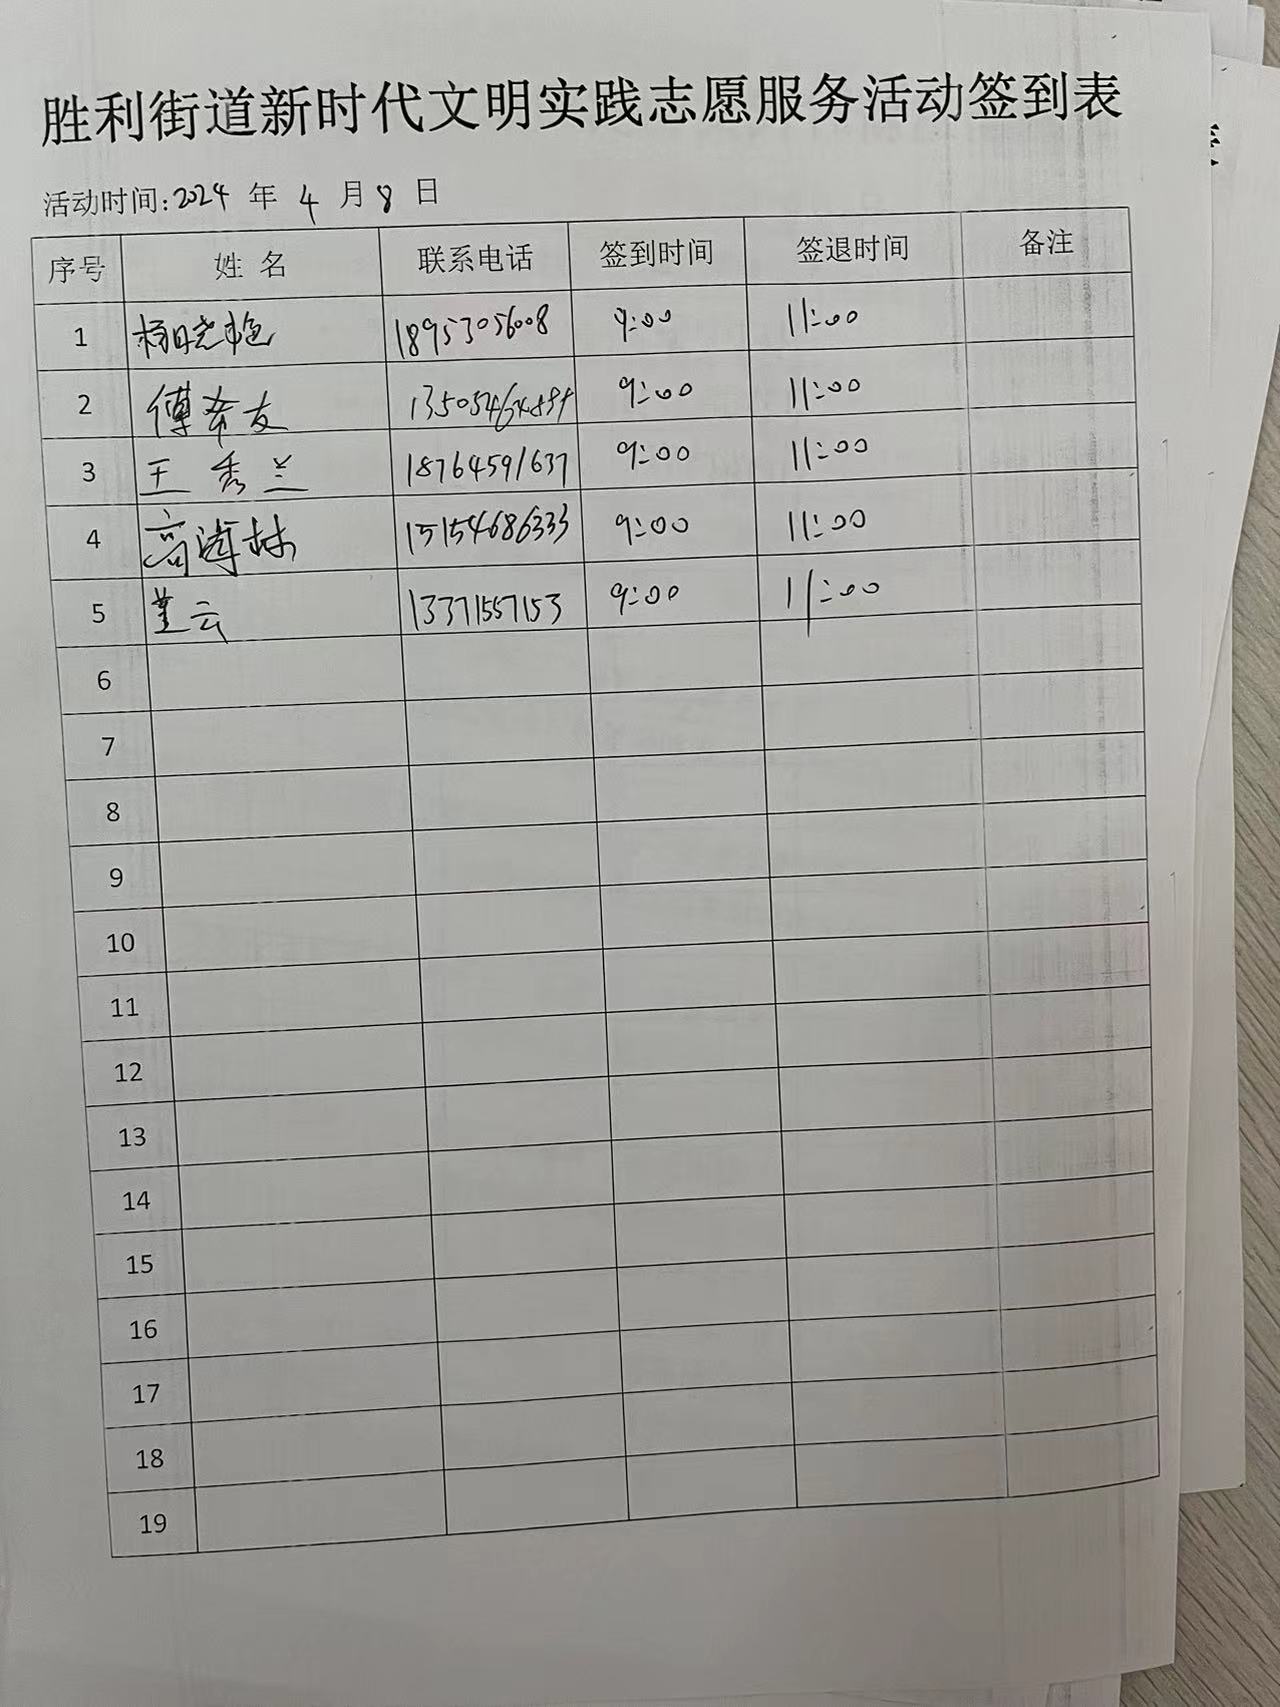 胜利街道新时代文明实践志愿服务活动签到表
活动时间:2024 年 4 月 8 日
序号 姓 名 联系电话 签到时间 签退时间 备注
1 杨晓艳 18953056008 9:00 11:00
2 傅希友 9:00 11:00
3 王秀兰 18764591637 9:00 11:00
4 15154686333 9:00 11:00
5 13371557153 9:00 11:00
6
7
8
9
10
11
12
13
14
15
16
17
18
19